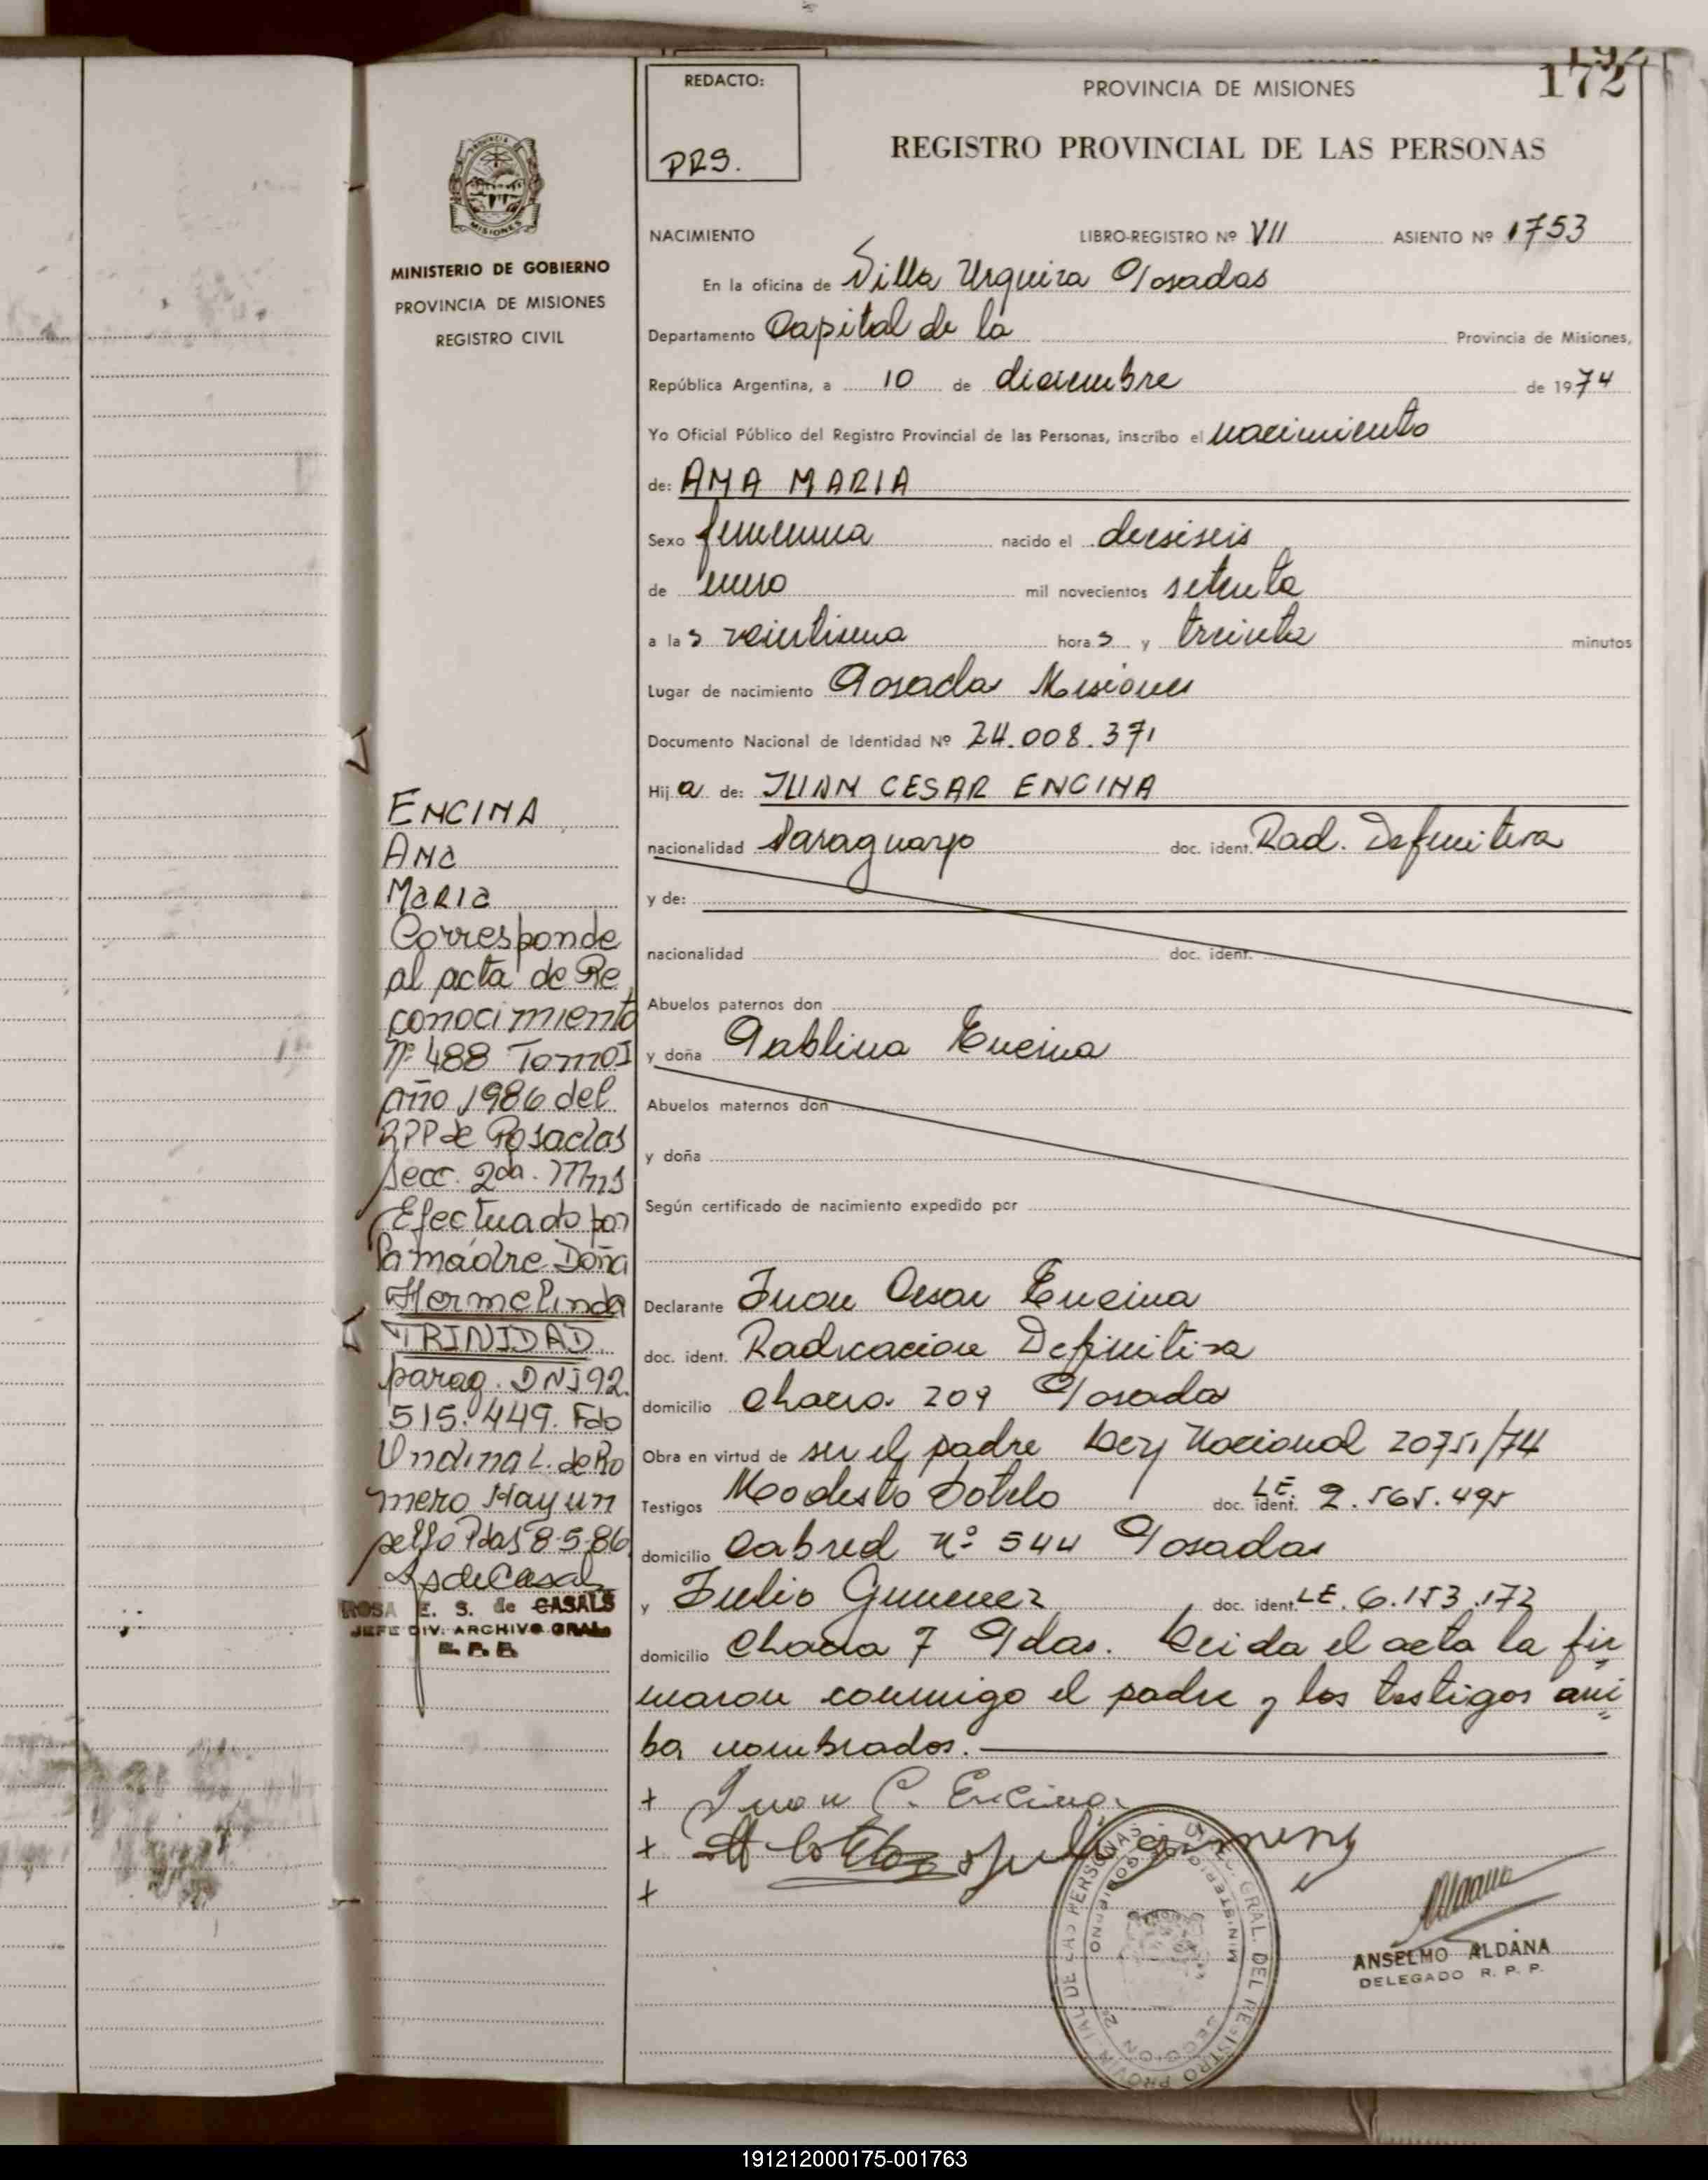 192
172
REDACTO:
PRS.
PROVINCIA DE MISIONES
REGISTRO PROVINCIAL DE LAS PERSONAS
MISIONES
MINISTERIO DE GOBIERNO
PROVINCIA DE MISIONES
REGISTRO CIVIL
NACIMIENTO LIBRO-REGISTRO Nº VII ASIENTO Nº 1753
En la oficina de Villa Urquiza Posadas
Departamento Capital de la Provincia de Misiones,
República Argentina, a 10 de diciembre de 1974
Yo Oficial Público del Registro Provincial de las Personas, inscribo el nacimiento
de: ANA MARIA
Sexo femenina nacido el diesiseis
de enero mil novecientos setenta
a las veintiuna horas y treinta minutos
Lugar de nacimiento Posadas Misiones
Documento Nacional de Identidad Nº 24.008.371
Hija de: JUAN CESAR ENCINA
nacionalidad Paraguayo doc. ident. Rad. Definitiva
y de:
nacionalidad doc. ident.
Abuelos paternos don
y doña Pablina Encina
Abuelos maternos don
y doña
Según certificado de nacimiento expedido por
Declarante Juan Cesar Encina
doc. ident. Radicacion Definitiva
domicilio Chacra 209 Posadas
Obra en virtud de ser el padre Ley Nacional 20751/74
Testigos Modesto Sotelo doc. ident. LE. 2.565.495
domicilio Cabred nº 544 Posadas
y Julio Gimenez doc. ident. LE. 6.153.172
domicilio Chacra 7 Pdas. Leida el acta la fir
maron conmigo el padre y los testigos arri
ba nombrados.
+ Juan C. Encina
+
+
ANSELMO ALDANA
DELEGADO R. P. P.
ENCINA
Ana
Maria
Corresponde
al acta de Re
conocimiento
Nº 488 Tomo I
año 1986 del
RPP de Posadas
Secc. 2da. Mnes
Efectuado por
la madre Doña
Hermelinda
TRINIDAD
parag. DNI 92.
515.449. Fdo
Undina L. de Ro
mero Hay un
sello Pdas 8-5-86
ROSA E. S. de CASALS
JEFE DIV. ARCHIVO GRAL.
R. P. P.
191212000175-001763